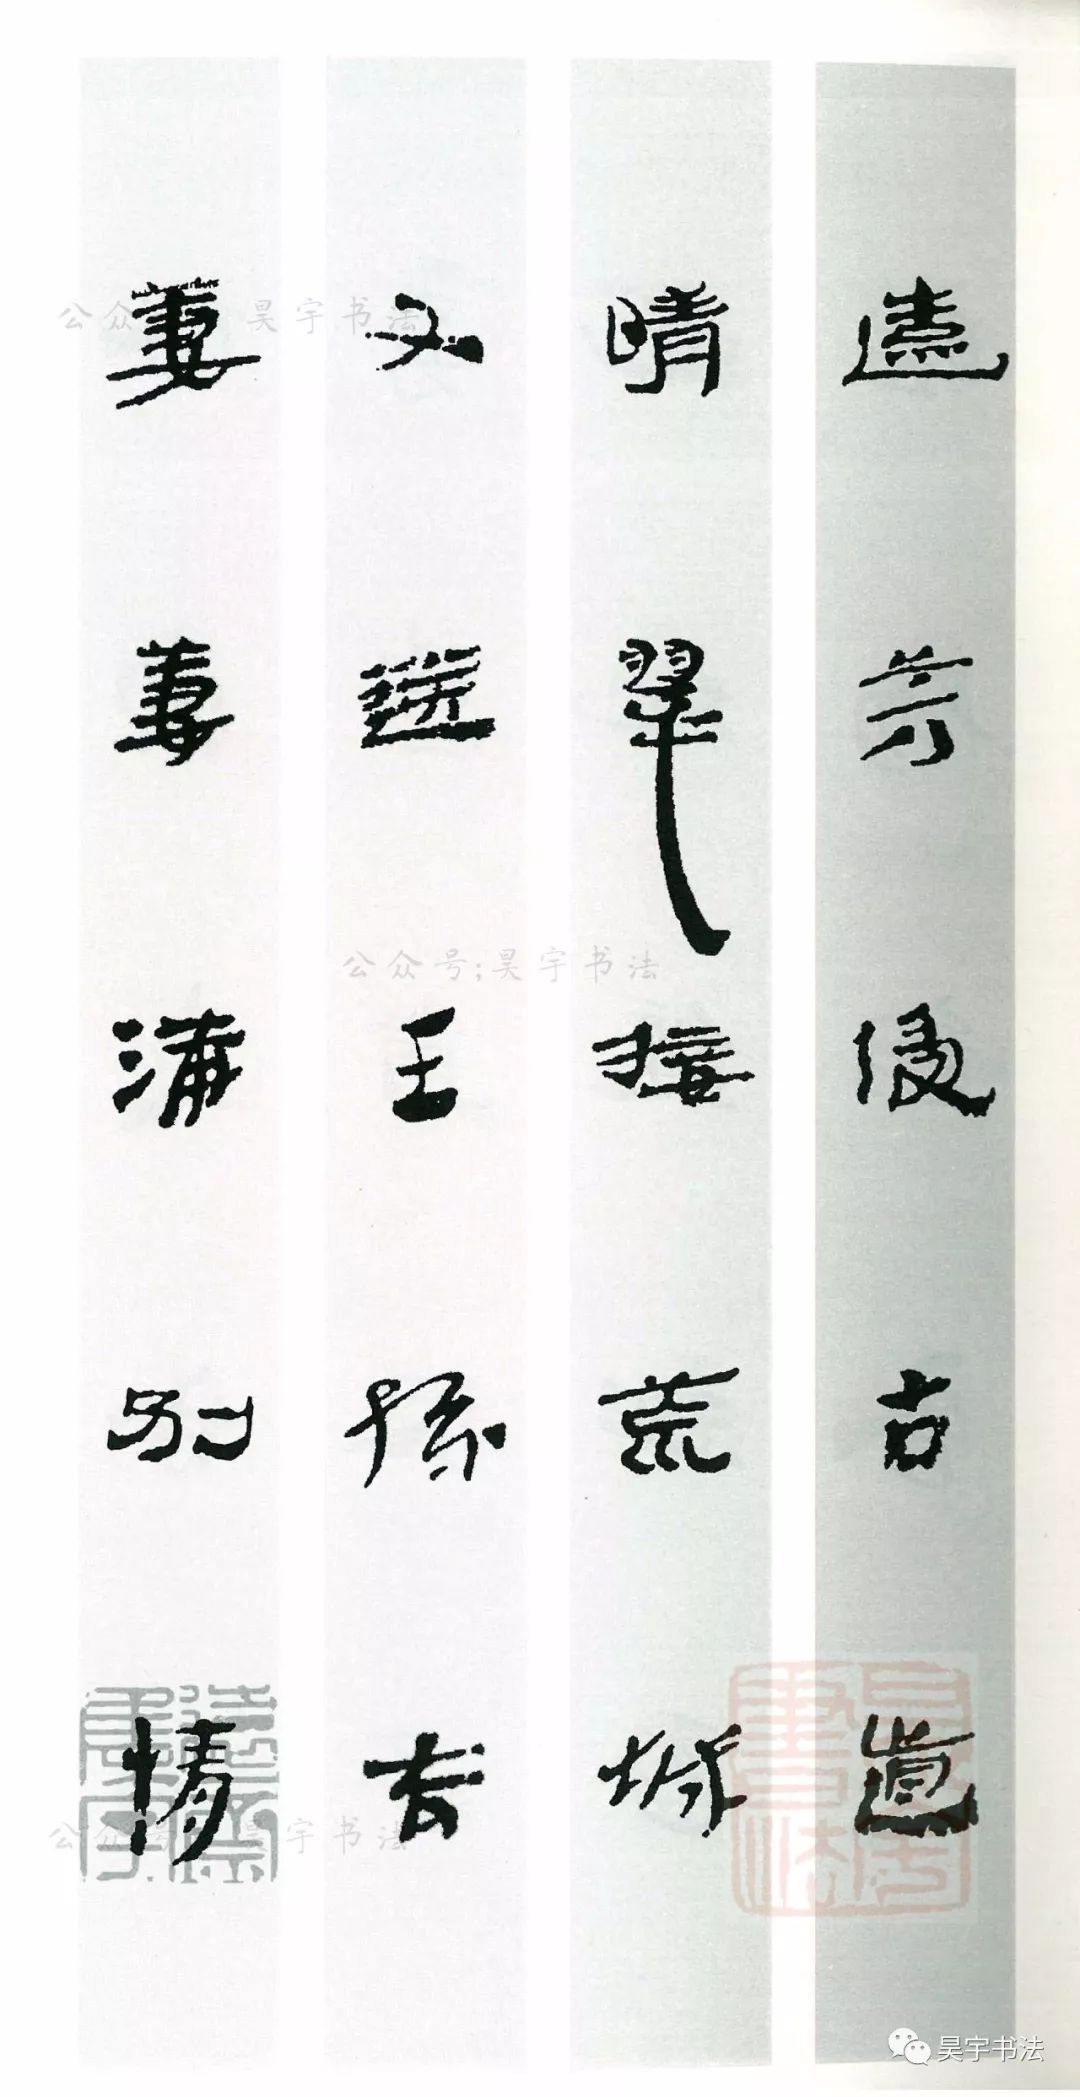 遠芳侵古道
晴翠接荒城
又送王孫去
萋萋滿別情
公众号:昊宇书法
公众号;昊宇书法
公众号:昊宇书法
昊宇书法